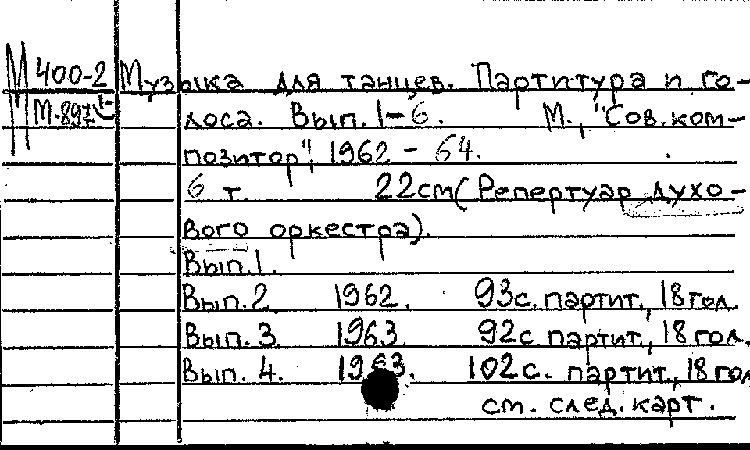 М 400-2 Музыка для танцев. Партитура и го-
М-897 лоса. Вып. 1-6. М., "Сов. ком-
позитор", 1962 - 64.
6 т. 22см (Репертуар духо-
вого оркестра).
Вып. 1.
Вып. 2 1962. 93с. партит., 18 гол.
Вып. 3 1963 92с партит., 18 гол.
Вып. 4. 1963. 102с. партит., 18 гол
см. след. карт.